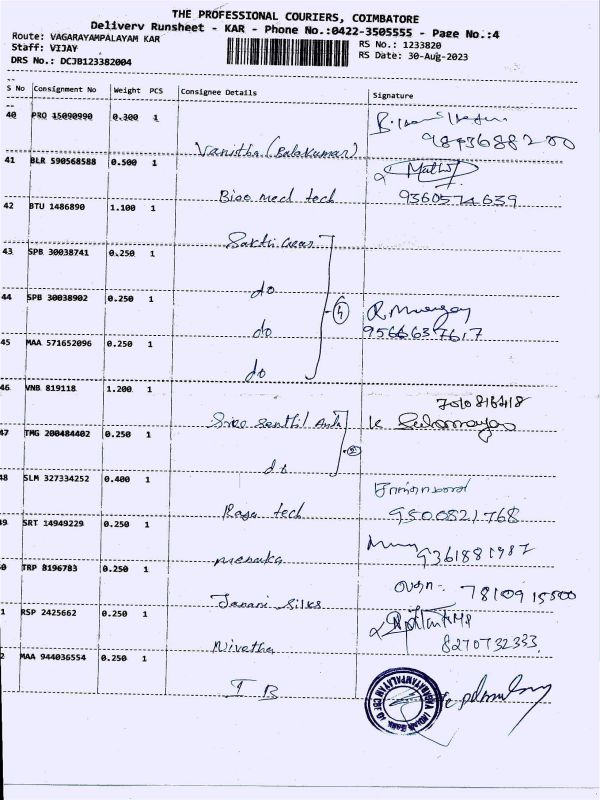 THE PROFESSIONAL COURIERS, COIMBATORE
Delivery Runsheet - KAR - Phone No.:0422-3505555 - Page No.:4
Route: VAGARAYAMPALAYAM KAR
RS No.: 1233820
Staff: VIJAY
RS Date: 30-Aug-2023
DRS No.: DCJB123382004
S No Consignment No Weight PCS Consignee Details Signature
40 PRO 15090990 0.300 1
Vanitha (Balakumar)
41 BLR 590568588 0.500 1
Bise med tech 9360574639
42 BTU 1486890 1.100 1
Sakthi Gears
43 SPB 30038741 0.250 1
do
44 SPB 30038902 0.250 1
do 9566637617
45 MAA 571652096 0.250 1
do
46 VNB 819118 1.200 1
7510816418
Sree Senthil
47 TMG 200484402 0.250 1
do
48 SLM 327334252 0.400 1
Raja tech 9500821768
49 SRT 14949229 0.250 1
menaka 9361881987
0 TRP 8196783 0.250 1
Janani Silks 7810915500
1 RSP 2425662 0.250 1
Nivetha 8270732333
2 MAA 944036554 0.250 1
I B